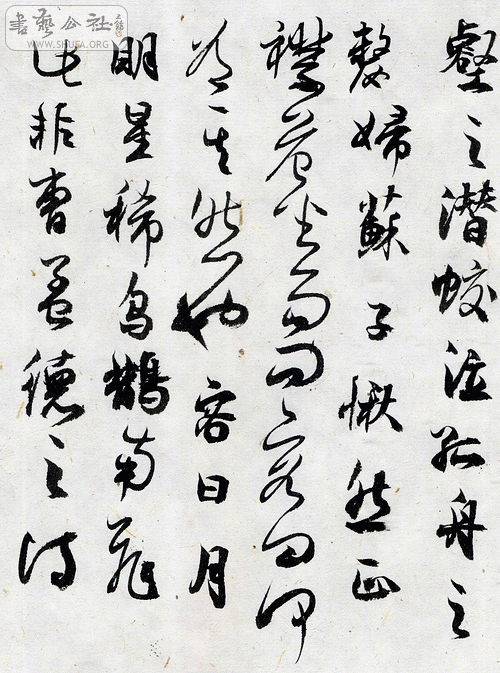 壑之潜蛟泣孤舟之
嫠婦蘇子愀然正
襟危坐而問客曰何
為其然也客曰月
明星稀烏鵲南飛
此非曹孟德之詩
書藝公社
WWW.SHUFA.ORG